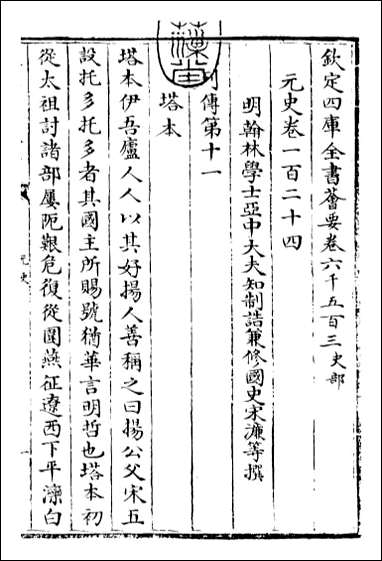 欽定四庫全書薈要卷六千五百三史部
元史卷一百二十四
明翰林學士亞中大夫知制誥兼修國史宋濂等撰
列傳第十一
塔本
塔本伊吾廬人人以其好揚人善稱之曰揚公父宋五
設托多托多者其國主所賜號猶華言明哲也塔本初
從太祖討諸部屢阨艱危復從圍燕征遼西下平灤白
元史